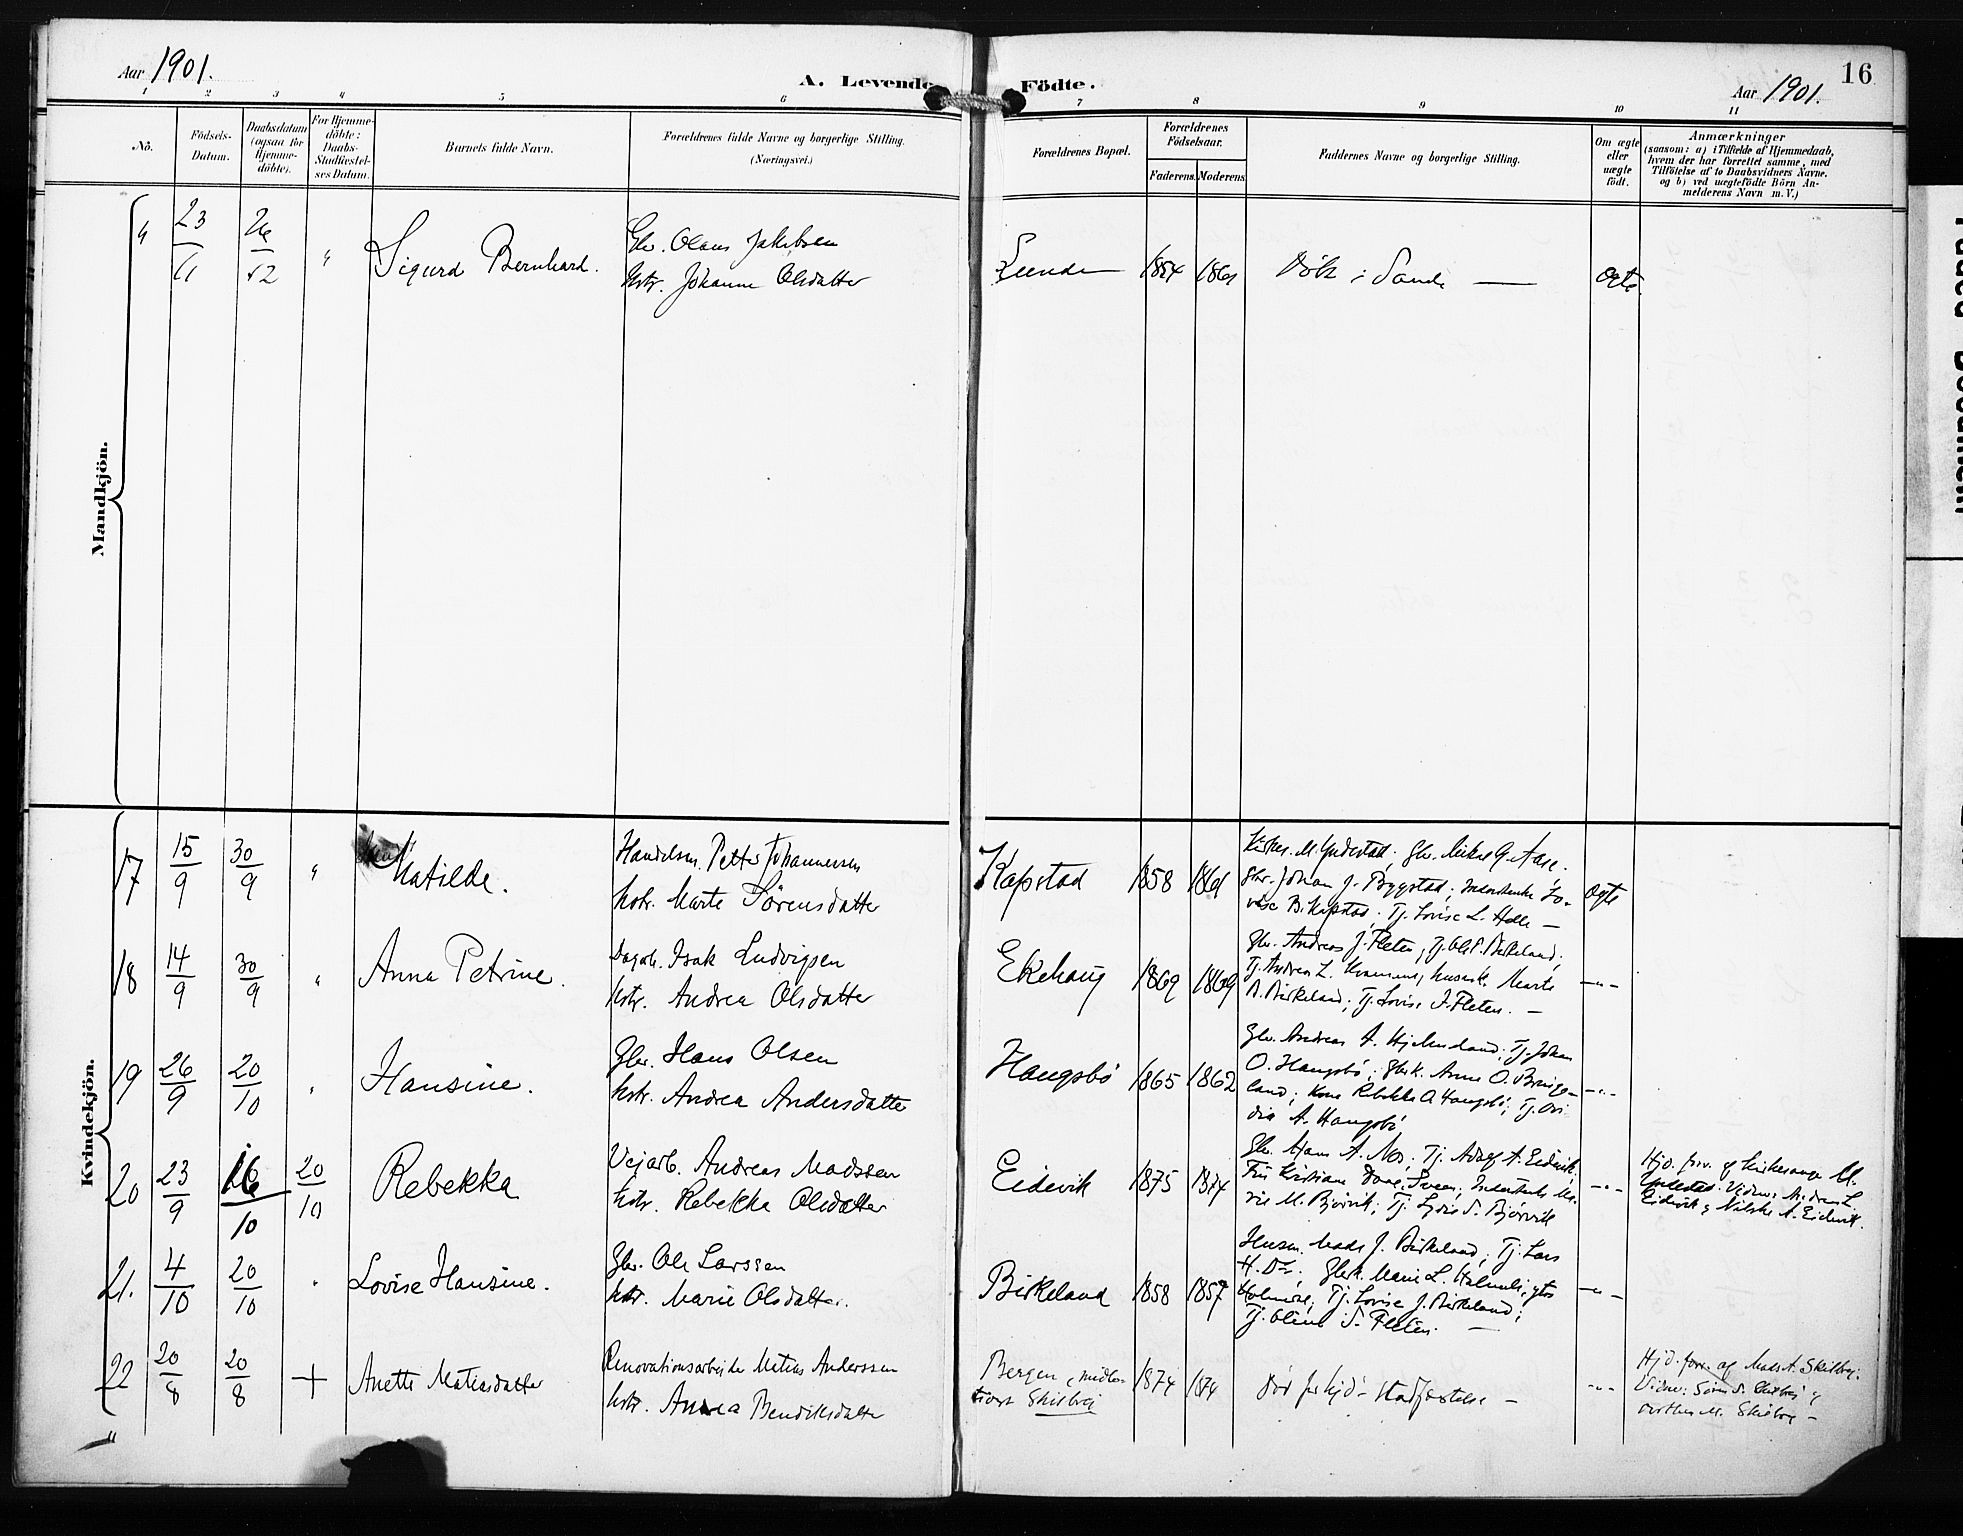 Aar 1901.
A. Levende Födte.
16
Aar 1901.
1 2 3 4 5 6 7 8 9 10 11
No.
Födsels-
Datum.
Daabsdatum
(ogsaa for
Hjemme-
döbte).
For Hjemme-
döbte:
Daabs-
Stadfæstel-
ses Datum.
Barnets fulde Navn.
Forældrenes fulde Navne og borgerlige Stilling.
(Næringsvei.)
Forældrenes Bopæl.
Forældrenes
Födselsaar.
Faderens. Moderens.
Faddernes Navne og borgerlige Stilling.
Om ægte
eller
uægte
födt.
Anmærkninger
(saasom: a) i Tilfælde af Hjemmedaab,
hvem der har forrettet samme, med
Tilföielse af to Daabsvidners Navne.
og b) ved uægtefödte Börn An-
melderens Navn m. V.)
Mandkjön.
" 23/11 26/12 " Sigurd Bernhard.
Gbr. Olaus Jakobsen
Kstr. Johanne Olsdatter
Lunde 1854 1861 Döbt i Sande — ægte
Kvindekjön.
17 15/9 30/9 " Matilde.
Handelsm. Petter Johannessen
Kstr. Marte Sørensdatter
Kapstad 1858 1861
Kirkes. M. Yndestad; Gbr. Mikal G. Aase.
Gbr. Johan J. Byggstad; Lo-
vise B. Kapstad; Tj. Lovise L. Helle —
ægte
18 14/9 30/9 " Anna Petrine.
Dagarb. Isak Ludvigsen
Kstr. Andrea Olsdatter
Ekehaug 1869 1869
Gbr. Andreas J. Fleten; Tj. Ole P. Birkeland;
Tj. Andrea L. Marte
B. Birkeland; Tj. Lovise J. Fleten. —
—"—
19 26/9 20/10 " Hansine.
Gbr. Hans Olsen
Kstr. Andrea Andersdatter
Haugsbø 1865 1862
Gbr. Andreas A. Hjelmeland; Tj. Johan
O. Haugsbø; Gbrk. Anne O. Bringe-
land; Kone Rebekka O. Haugsbø; Tj. Ovi
dia A. Haugsbø
—"—
20 23/9 16/10 20/10 Rebekka
Vejarb. Andreas Madssen
Kstr. Rebekka Olsdatter
Eidevik 1875 1874
Gbr. Hans A. Nes; Tj. Adolf A. Eidevik;
Fru Kristiane Sveen; Ma-
rie M. Bjørvik; Tj. S. Bjørvik
—"—
Hjd. forr. af Kirkesanger M.
Yndestad. Vidner: Andreas L.
Eidevik og A. Eidevik.
21. 4/10 20/10 " Lovise Hansine.
Gbr. Ole Larssen
Kstr. Marie Olsdatter.
Birkeland 1858 1857
Husm. Mads J. Birkeland; Tj. Lars
H. Ds.; Gbrk. Marie L.
Tj. Lovise J. Birkeland;
Tj. Oline S. Fleten. —
—"—
22 20/8 20/8 + Anette Matiasdatter
Renovationsarbeider Matias Anderssen
Kstr. Anna Bendiksdatter
Bergen, midler-
tidigt Skilbrei
1874 1874 Død før hjd's Stadfæstelse — —"—
Hjd. forr. af Mads A. Skilbrei.
Vidner: Søren S. Skilbrei og
M. Skilbrei —
"